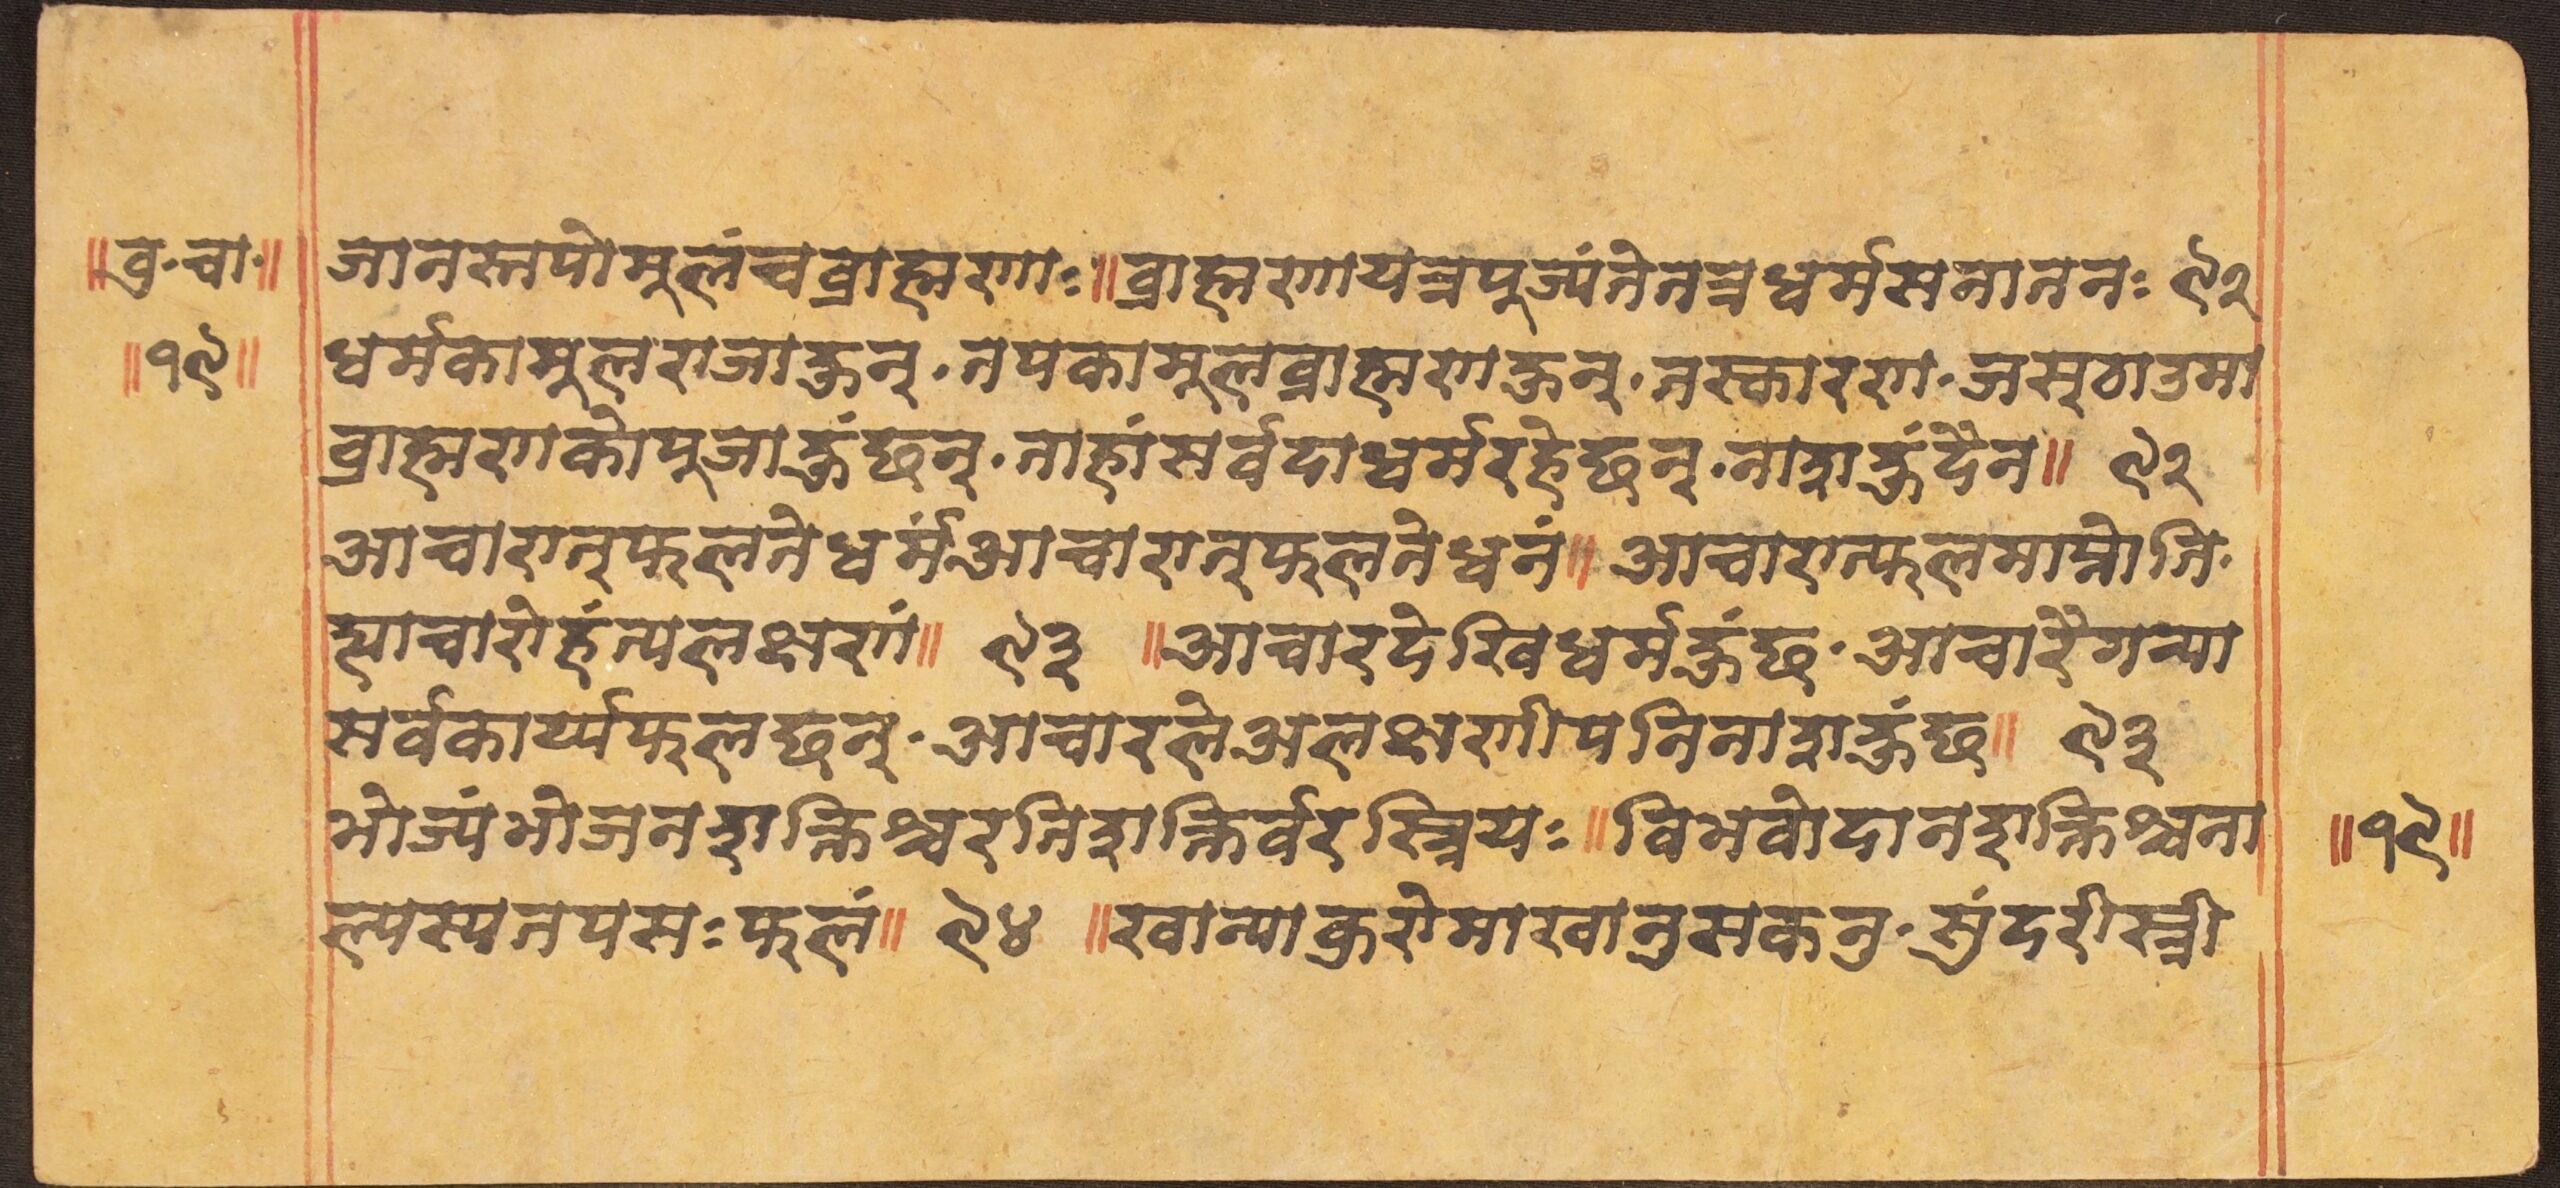 ॥वृ·चा·॥ जानस्तपोमूलंचब्राह्मणाः॥ब्राह्मणायत्रपूज्यंतेतत्रधर्मसनातनः ९२
॥१९॥ धर्मकामूलराजाहुन्·तपकामूलब्राह्मणहुन्·तस्कारण·जस्ठाउमा
ब्राह्मणकोपूजाहुंछन्·ताहांसर्वदाधर्मरहेछन्·नाशहुंदैन॥ ९२
आचारात्फलतेधर्मंआचारात्फलतेधनं॥आचारात्फलमाप्नोति·
ह्याचारोहंत्यलक्षणं॥ ९३ ॥आचारदेखिधर्महुंछ·आचारैगर्‍या
सर्वकार्य्यफलछन्·आचारलेअलक्षणीपनिनाशहुंछ॥ ९३
भोज्यंभोजनशक्तिश्चरतिशक्तिर्वरस्त्रियः॥विभवोदानशक्तिश्चना ॥१९॥
ल्पस्यतपसःफलं॥ ९४ ॥खान्याकुरोमाखानुसकनु·सुंदरीस्त्री